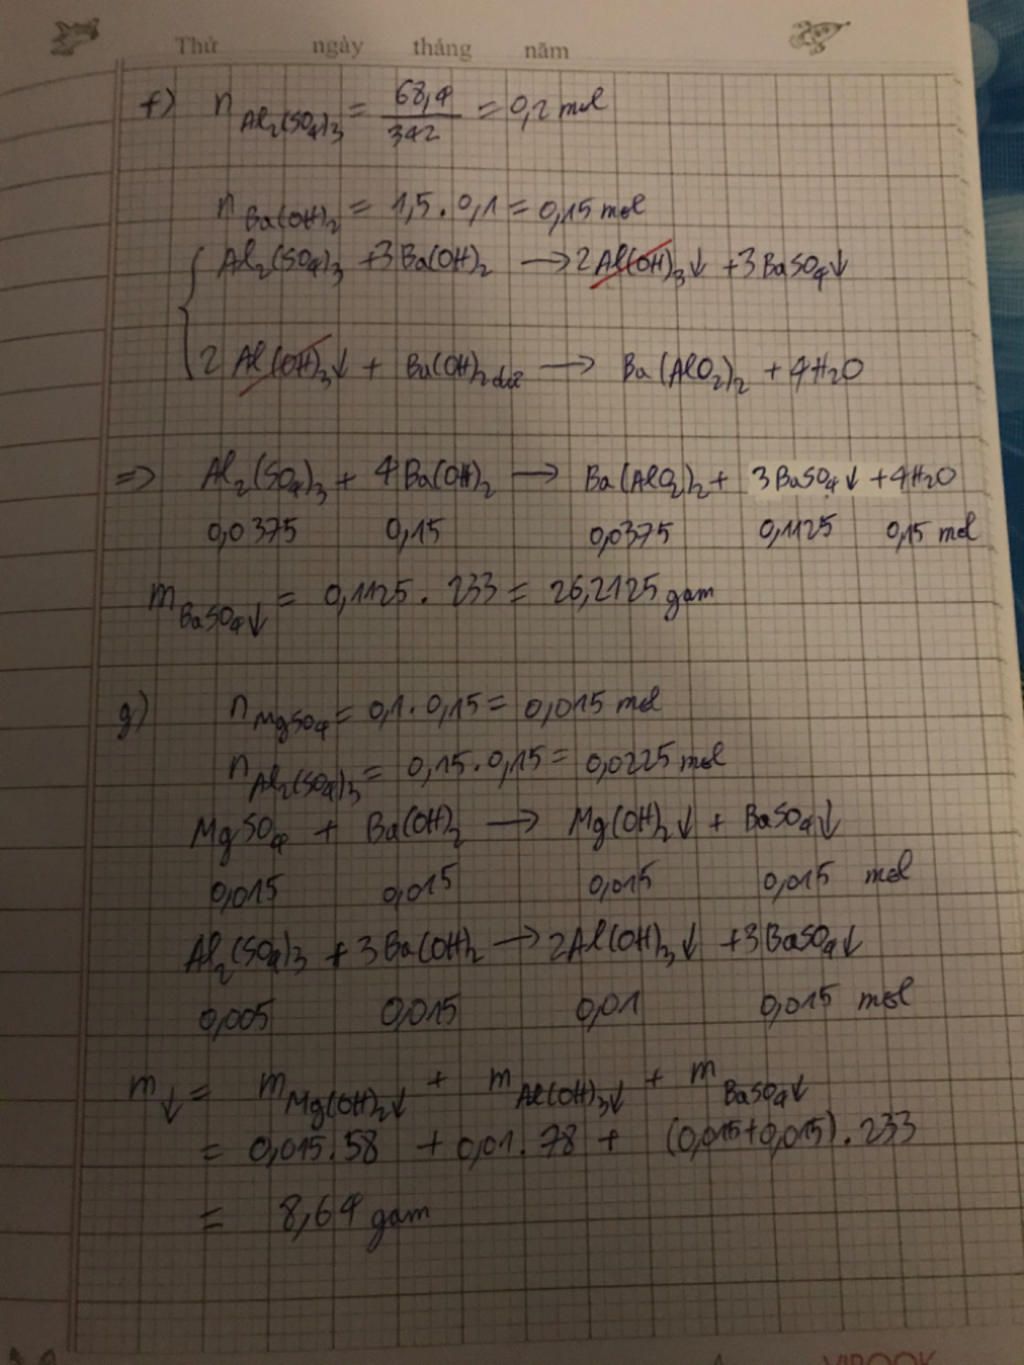 Thứ ngày tháng năm
f) n Al₂(SO₄)₃ = 68,4/342 = 0,2 mol
n Ba(OH)₂ = 1,5 . 0,1 = 0,15 mol
Al₂(SO₄)₃ + 3Ba(OH)₂ → 2Al(OH)₃↓ + 3BaSO₄↓
2Al(OH)₃↓ + Ba(OH)₂ dư → Ba(AlO₂)₂ + 4H₂O
=> Al₂(SO₄)₃ + 4Ba(OH)₂ → Ba(AlO₂)₂ + 3BaSO₄↓ + 4H₂O
0,0375 0,15 0,0375 0,1125 0,15 mol
m BaSO₄↓ = 0,1125 . 233 = 26,2125 gam
g) n MgSO₄ = 0,1 . 0,15 = 0,015 mol
n Al₂(SO₄)₃ = 0,15 . 0,15 = 0,0225 mol
MgSO₄ + Ba(OH)₂ → Mg(OH)₂↓ + BaSO₄↓
0,015 0,015 0,015 0,015 mol
Al₂(SO₄)₃ + 3Ba(OH)₂ → 2Al(OH)₃↓ + 3BaSO₄↓
0,005 0,015 0,01 0,015 mol
m↓ = m Mg(OH)₂↓ + m Al(OH)₃↓ + m BaSO₄↓
= 0,015.58 + 0,01.78 + (0,015+0,015).233
= 8,64 gam